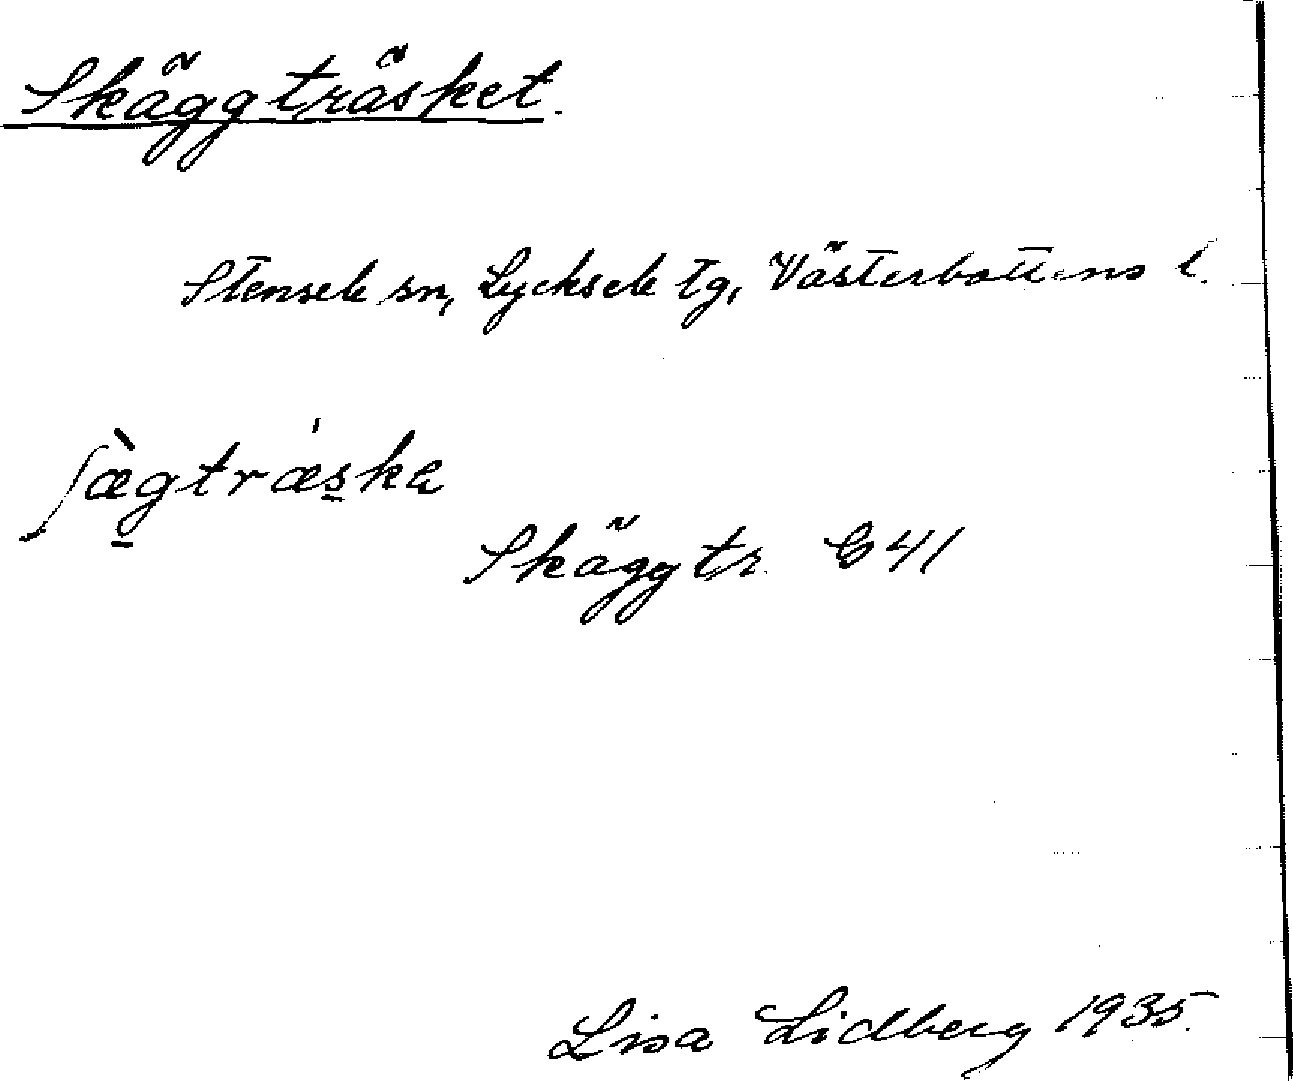 Skäggträsket.
Stensele sn, Lycksele tg, Västerbottens l.
ʃæ̀gtræ̍s̠ka
Skäggtr. G41
Lisa Lidberg 1935.